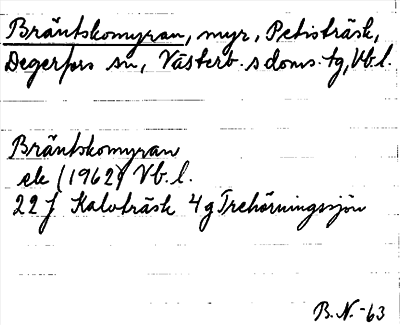 Bräntskomyran, myr, Petisträsk,
Degerfors sn, Västerb.s doms. tg, Vb.l.
Bräntskomyran
ek (1962) Vb.l.
22 J Kalvträsk 4 g Trehörningssjön
B.N.-63